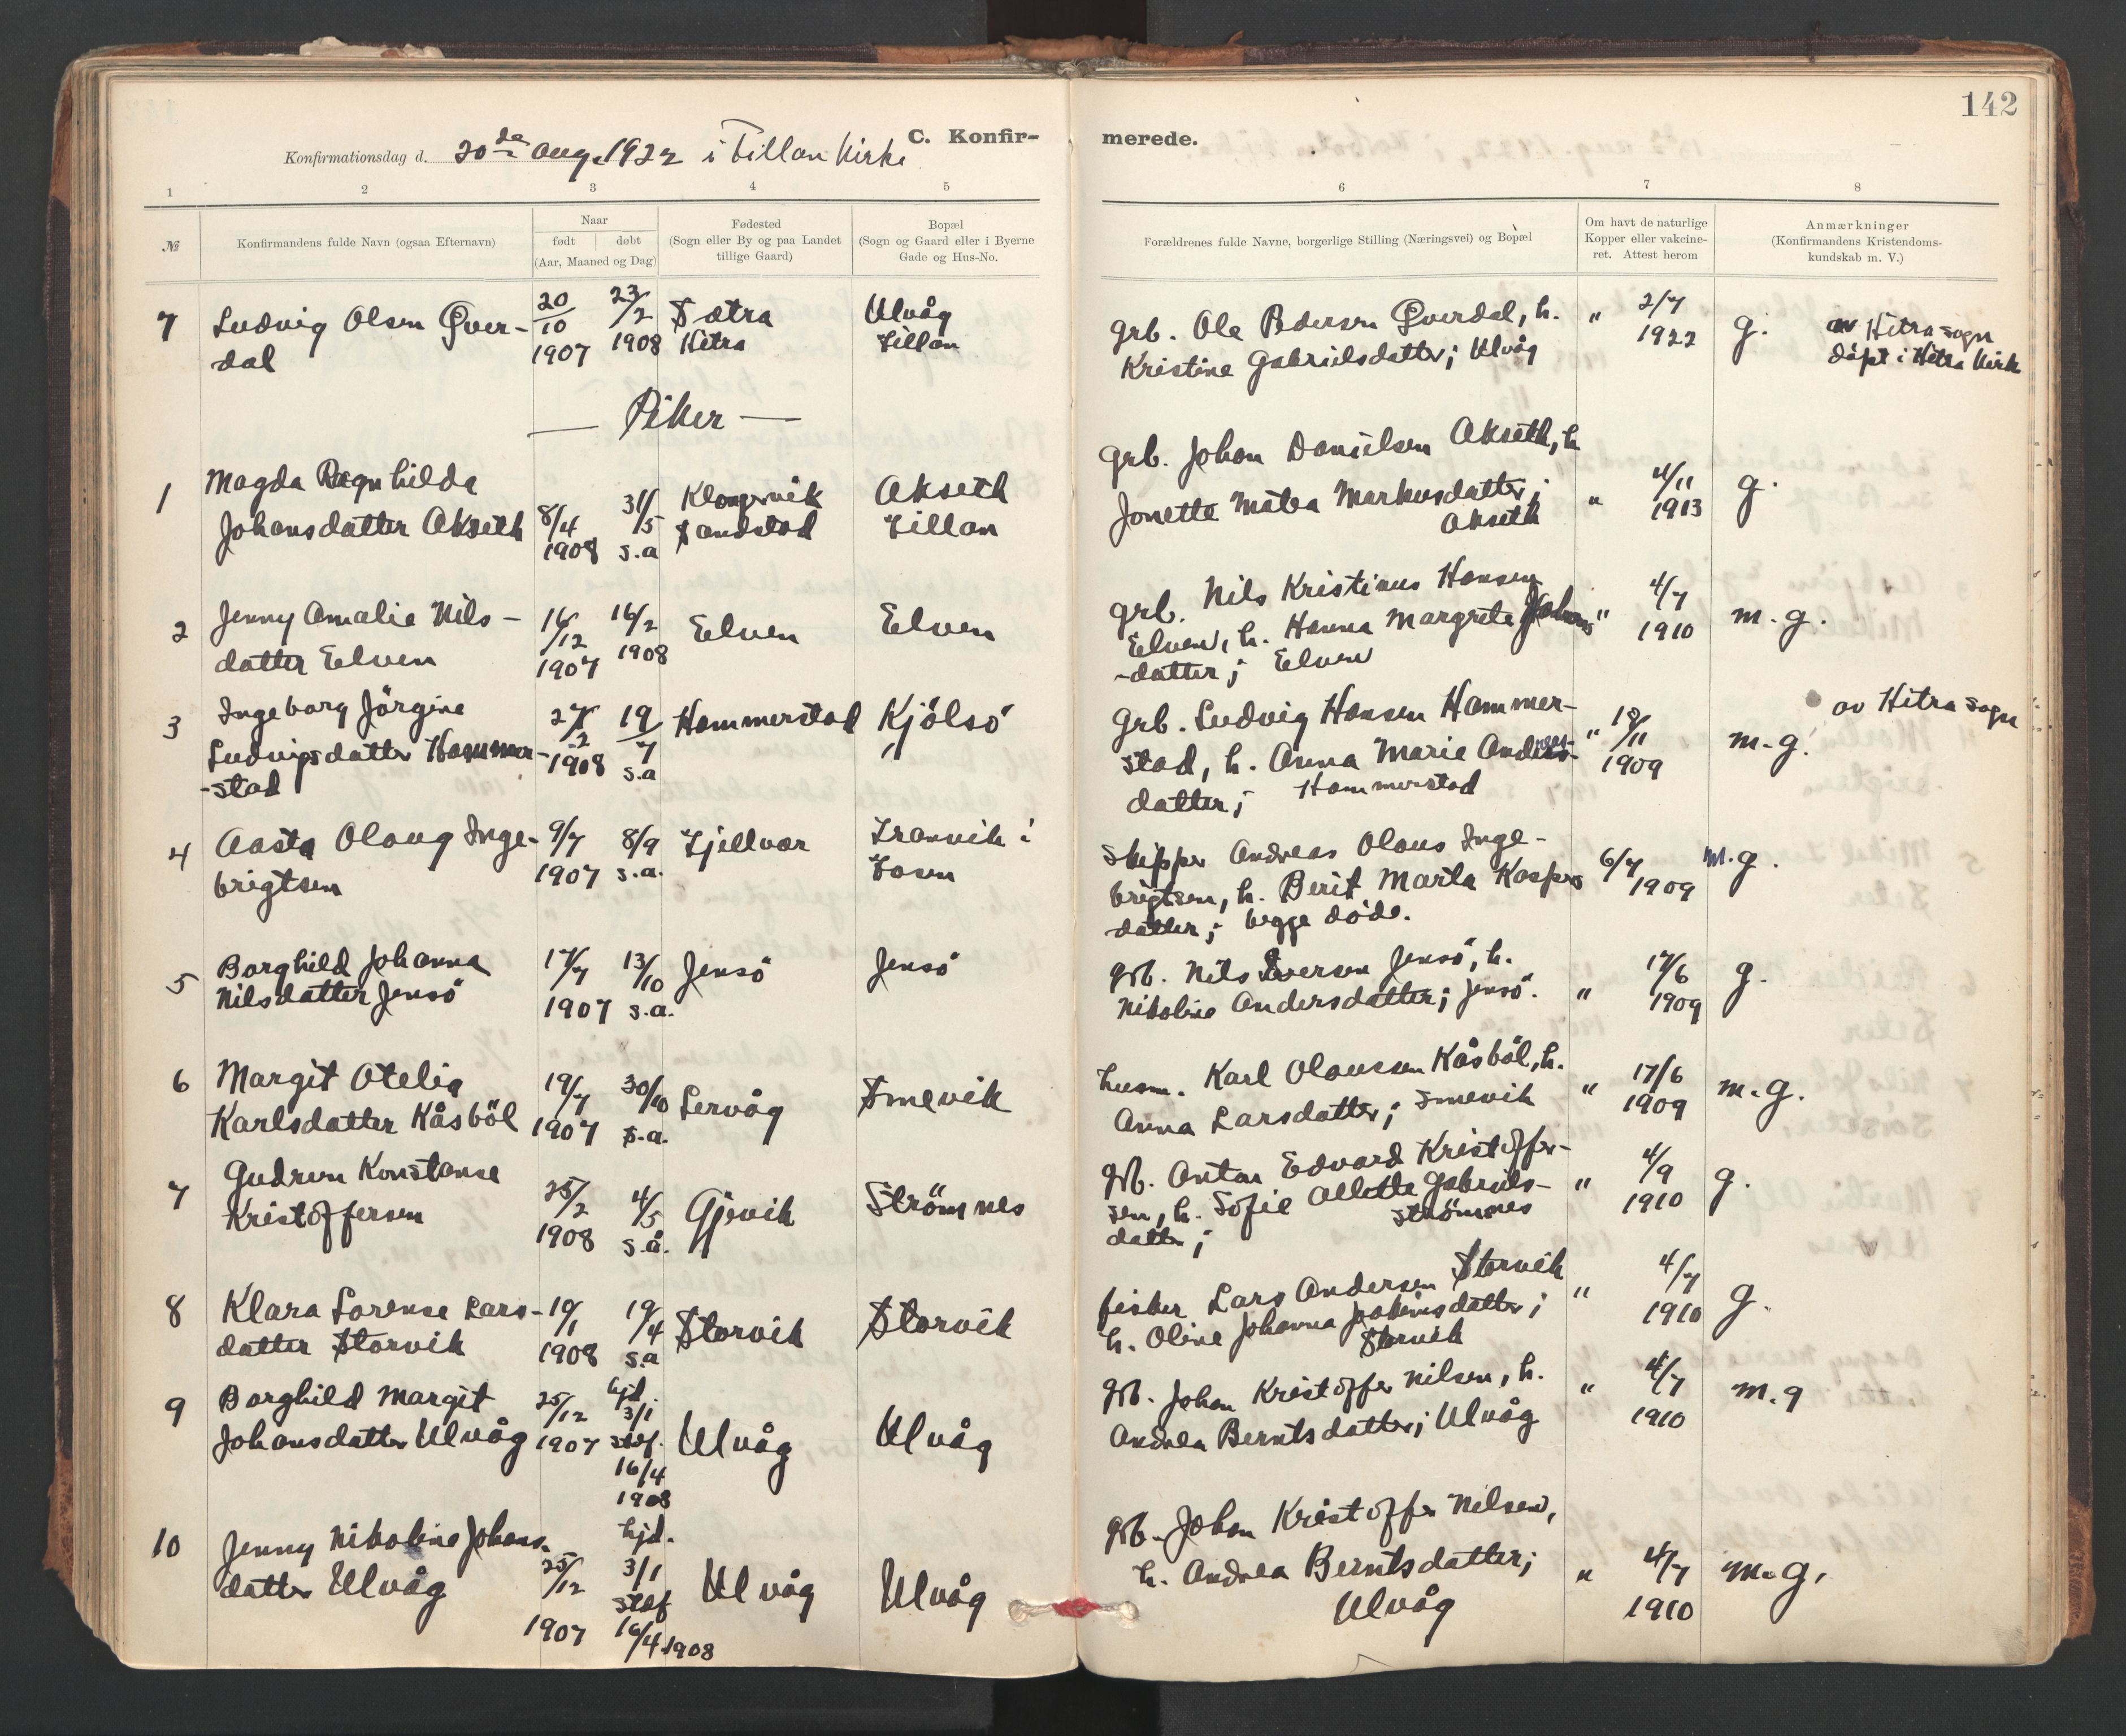 142
C. Konfir- merede.
Konfirmationsdag d. 20de Aug. 1922 i Fillan Kirke
1 2 3 4 5 6 7 8
№
Konfirmandens fulde Navn (ogsaa Efternavn)
Naar
født døbt
(Aar, Maaned og Dag)
Fødested
(Sogn eller By og paa Landet
tillige Gaard)
Bopæl
(Sogn og Gaard eller i Byerne
Gade og Hus-No.
Forældrenes fulde Navne, borgerlige Stilling (Næringsvei) og Bopæl
Om havt de naturlige
Kopper eller vakcine-
ret. Attest herom
Anmærkninger
(Konfirmandens Kristendoms-
kundskab m. V.)
7 Ludvig Olsen Qver- 20/10 23/2 Sætra Ulvåg grb. Ole Pedersen Qverdal, h. " 2/7 g. av Hitra sogn
dal 1907 1908 Hitra Fillan Kristine Gabrielsdatter; Ulvåg 1922 døpt i Hitra Kirk
— Piker —
grb. Johan Danielsen Akseth, h
1 Magda Ragnhilda Akseth
Johansdatter Akseth 8/4 31/5 Sandstad Fillan Jonette Matea Markusdatter; " 4/11 g.
1908 s.a Akseth 1913
2 Jenny Amalie Nils- 16/12 16/2 Elven Elven grb. Nils Kristinus Hansen 4/7 m.g.
datter Elven 1907 1908 Elven, h. Hanna Margrete " 1910
-datter; Elven
3 Ingeborg Jörgine 19/7 Hammerstad Kjölsö grb. Ludvig Hansen Hammer- " m.g. av Hitra sogn
Ludvigsdatter Hammer- 1908 s.a " stad, h. Anna Marie 1909
-stad datter; Hammerstad
4 Aasta Olaug Inge- 9/7 8/9 Fjellvær Tranvik i skipper Andreas Olaus Inge- 6/7 m.g.
brigtsen 1907 s.a. Fosen brigtsen, h. Berit Marta Kaspers 1909
datter; begge döde.
5 Borghild Johanna 17/7 13/10 Jensö Jensö grb. Nils Iversen Jensö, h. 17/6 g.
Nilsdatter Jensö 1907 s.a. Nikoline Andersdatter; Jensö. " 1909
6 Margit Otelia 19/7 30/10 Lervåg Smevik husm. Karl Olaussen Kåsböl, h. " 17/6 m.g.
Karlsdatter Kåsböl 1907 s.a. Anna Larsdatter; Smevik 1909
7 Gudrun Konstanse 25/2 4/5 Gjevik Strömnes grb. Anton Edvard Kristoffer- " 4/9 g.
Kristoffersen 1908 s.å. sen, h. Sofie Allette Gabriels- 1910
datter; Strömnes
8 Klara Lorense Lars- 19/1 19/4 Storvik Storvik fisker Lars Andersen Storvik " 4/7 g.
datter Storvik 1908 s.a h. Oline Johanna Joakimsdatter; 1910
Storvik
9 Borghild Margit 25/12 hjd. 3/1 Ulvåg Ulvåg grb. Johan Kristoffer Nilsen, h. " 4/7 m.g
Johansdatter Ulvåg 1907 stdf. 16/4 1908 Andrea Berntsdatter; Ulvåg 1910
10 Jenny Nikoline Johans- 25/12 hjd. 3/1 Ulvåg Ulvåg grb. Johan Kristoffer Nilsen,
datter Ulvåg 1907 stdf 16/4 1908 h. Andrea Berntsdatter; " 4/7 m.g.
Ulvåg 1910